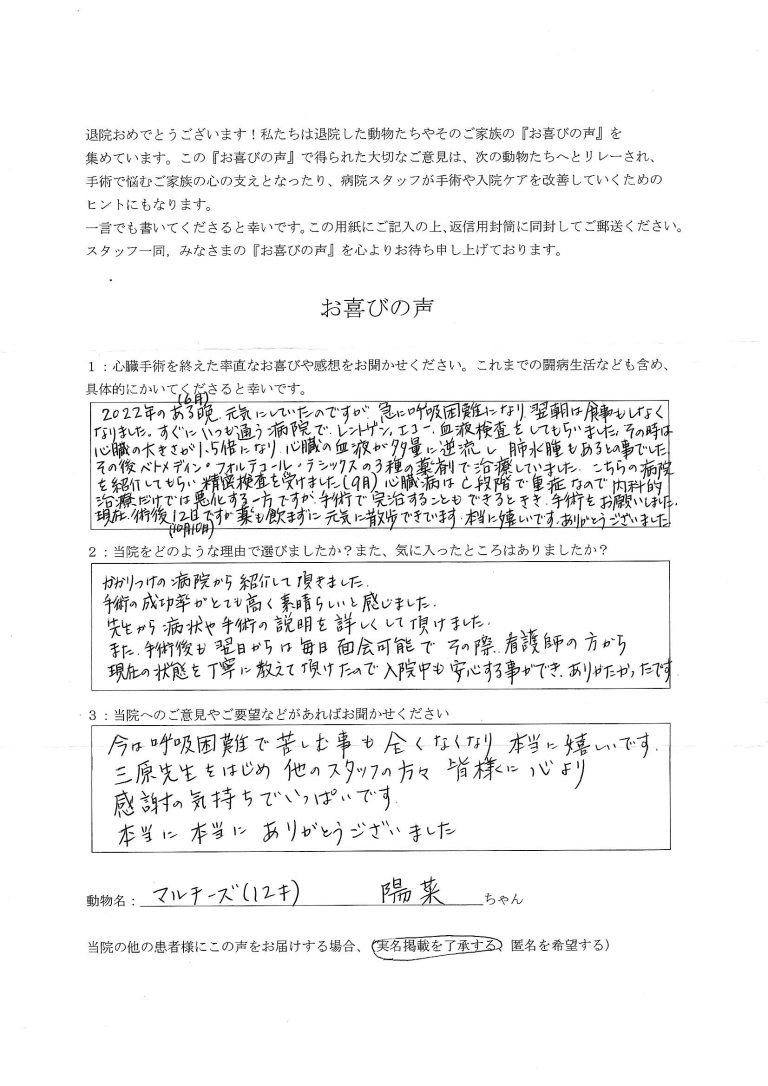 退院おめでとうございます！私たちは退院した動物たちやそのご家族の『お喜びの声』を
集めています。この『お喜びの声』で得られた大切なご意見は、次の動物たちへとリレーされ、
手術で悩むご家族の心の支えとなったり、病院スタッフが手術や入院ケアを改善していくための
ヒントにもなります。
一言でも書いてくださると幸いです。この用紙にご記入の上、返信用封筒に同封してご郵送ください。
スタッフ一同，みなさまの『お喜びの声』を心よりお待ち申し上げております。
お喜びの声
１：心臓手術を終えた率直なお喜びや感想をお聞かせください。これまでの闘病生活なども含め、
具体的にかいてくださると幸いです。
(6月)
2022年のある晩、元気にしていたのですが、急に呼吸困難になり、翌朝は食事もしなく
なりました。すぐにいつも通う病院で、レントゲン、エコー、血液検査をしてもらいました。その時は
心臓の大きさが1.5倍になり、心臓の血液が多量に逆流し、肺水腫もあるとの事でした。
その後ベトメディン・フォルテコール・ラシックスの3種の薬剤で治療していました。こちらの病院
を紹介してもらい精密検査を受けました(9月) 心臓病はC段階で重症なので内科的
治療だけでは悪化する一方ですが、手術で完治することもできるときき、手術をお願いしました。
現在、術後12日ですが薬も飲まずに元気に散歩できています。本当に嬉しいです。ありがとうございました
(10月10日)
２：当院をどのような理由で選びましたか？また、気に入ったところはありましたか？
かかりつけの病院から紹介して頂きました。
手術の成功率がとても高く素晴らしいと感じました。
先生から病状や手術の説明を詳しくして頂けました。
また、手術後も翌日からは毎日面会可能で、その際、看護師の方から
現在の状態を丁寧に教えて頂けたので入院中も安心する事ができ、ありがたかったです
３：当院へのご意見やご要望などがあればお聞かせください
今は呼吸困難で苦しむ事も全くなくなり、本当に嬉しいです。
三原先生をはじめ他のスタッフの方々皆様に心より
感謝の気持ちでいっぱいです。
本当に本当にありがとうございました
動物名：マルチーズ(12才) 陽菜 ちゃん
当院の他の患者様にこの声をお届けする場合、(実名掲載を了承する、匿名を希望する)